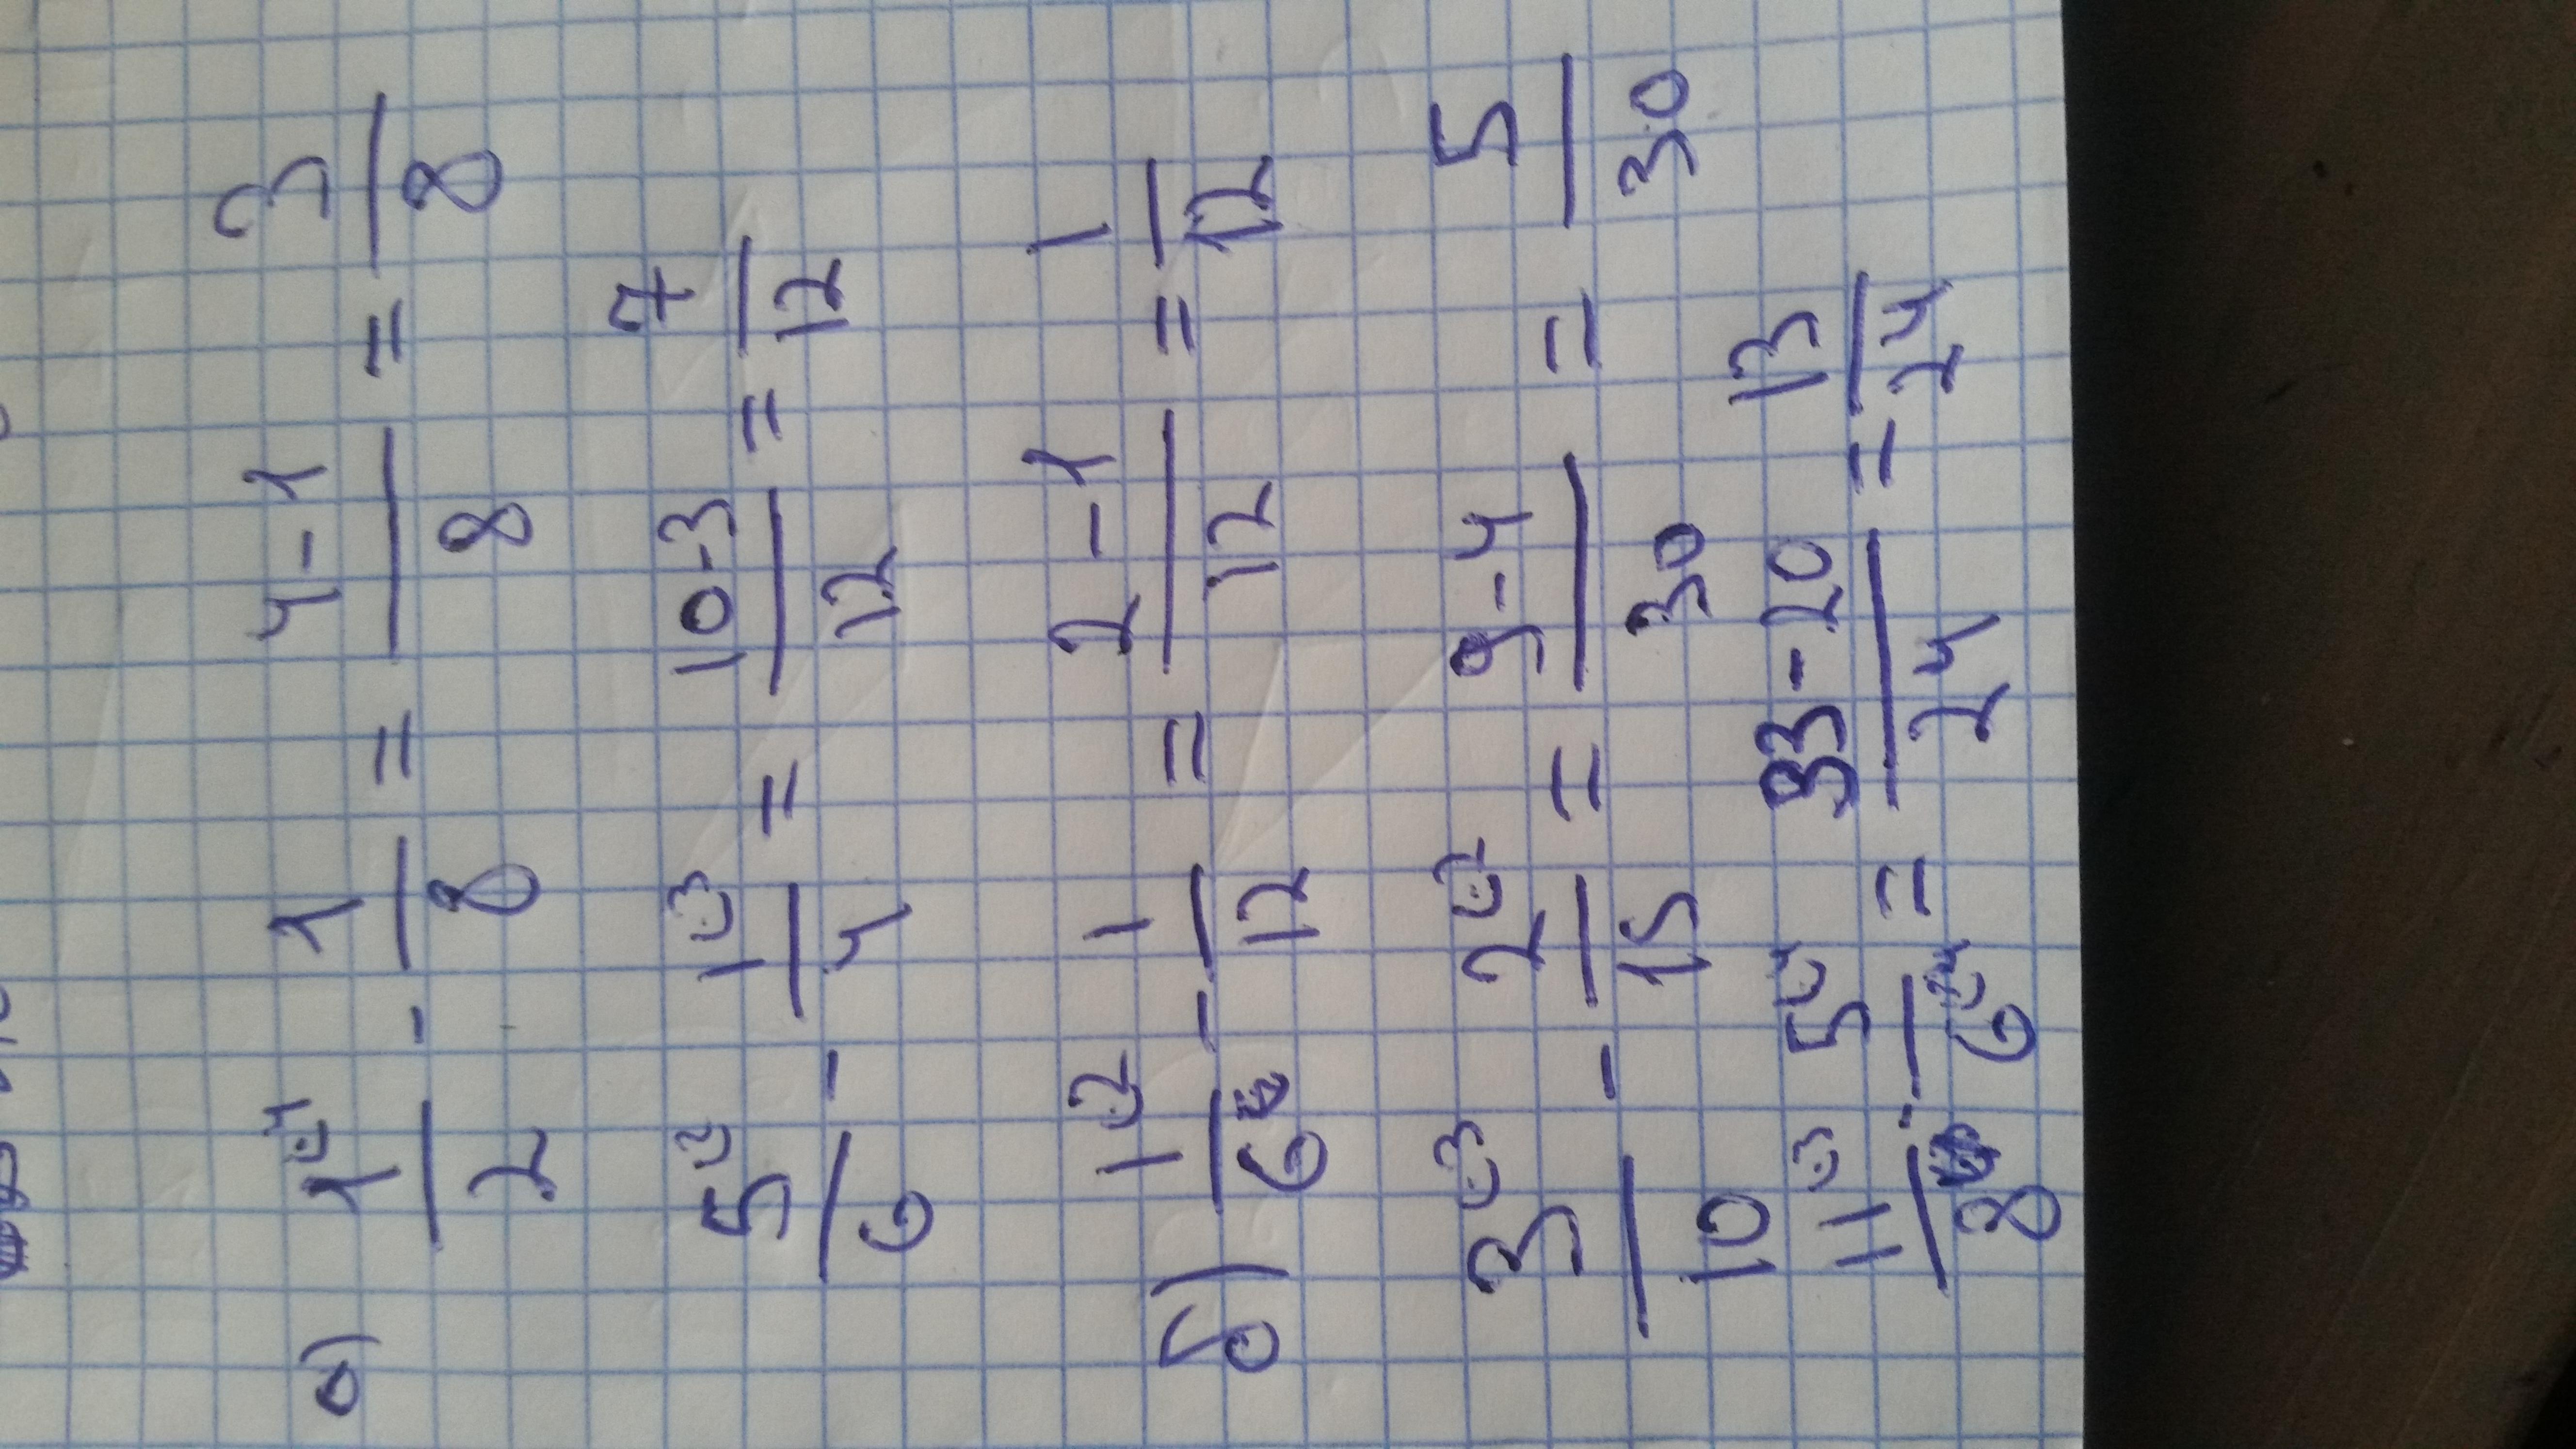 а) 1⁴/2 - 1/8 = 4-1/8 = 3/8
5²/6 - 1³/4 = 10-3/12 = 7/12
б) 1²/6 - 1/12 = 2-1/12 = 1/12
3³/10 - 2²/15 = 9-4/30 = 5/30
11³/8 - 5⁴/6 = 33-20/24 = 13/24